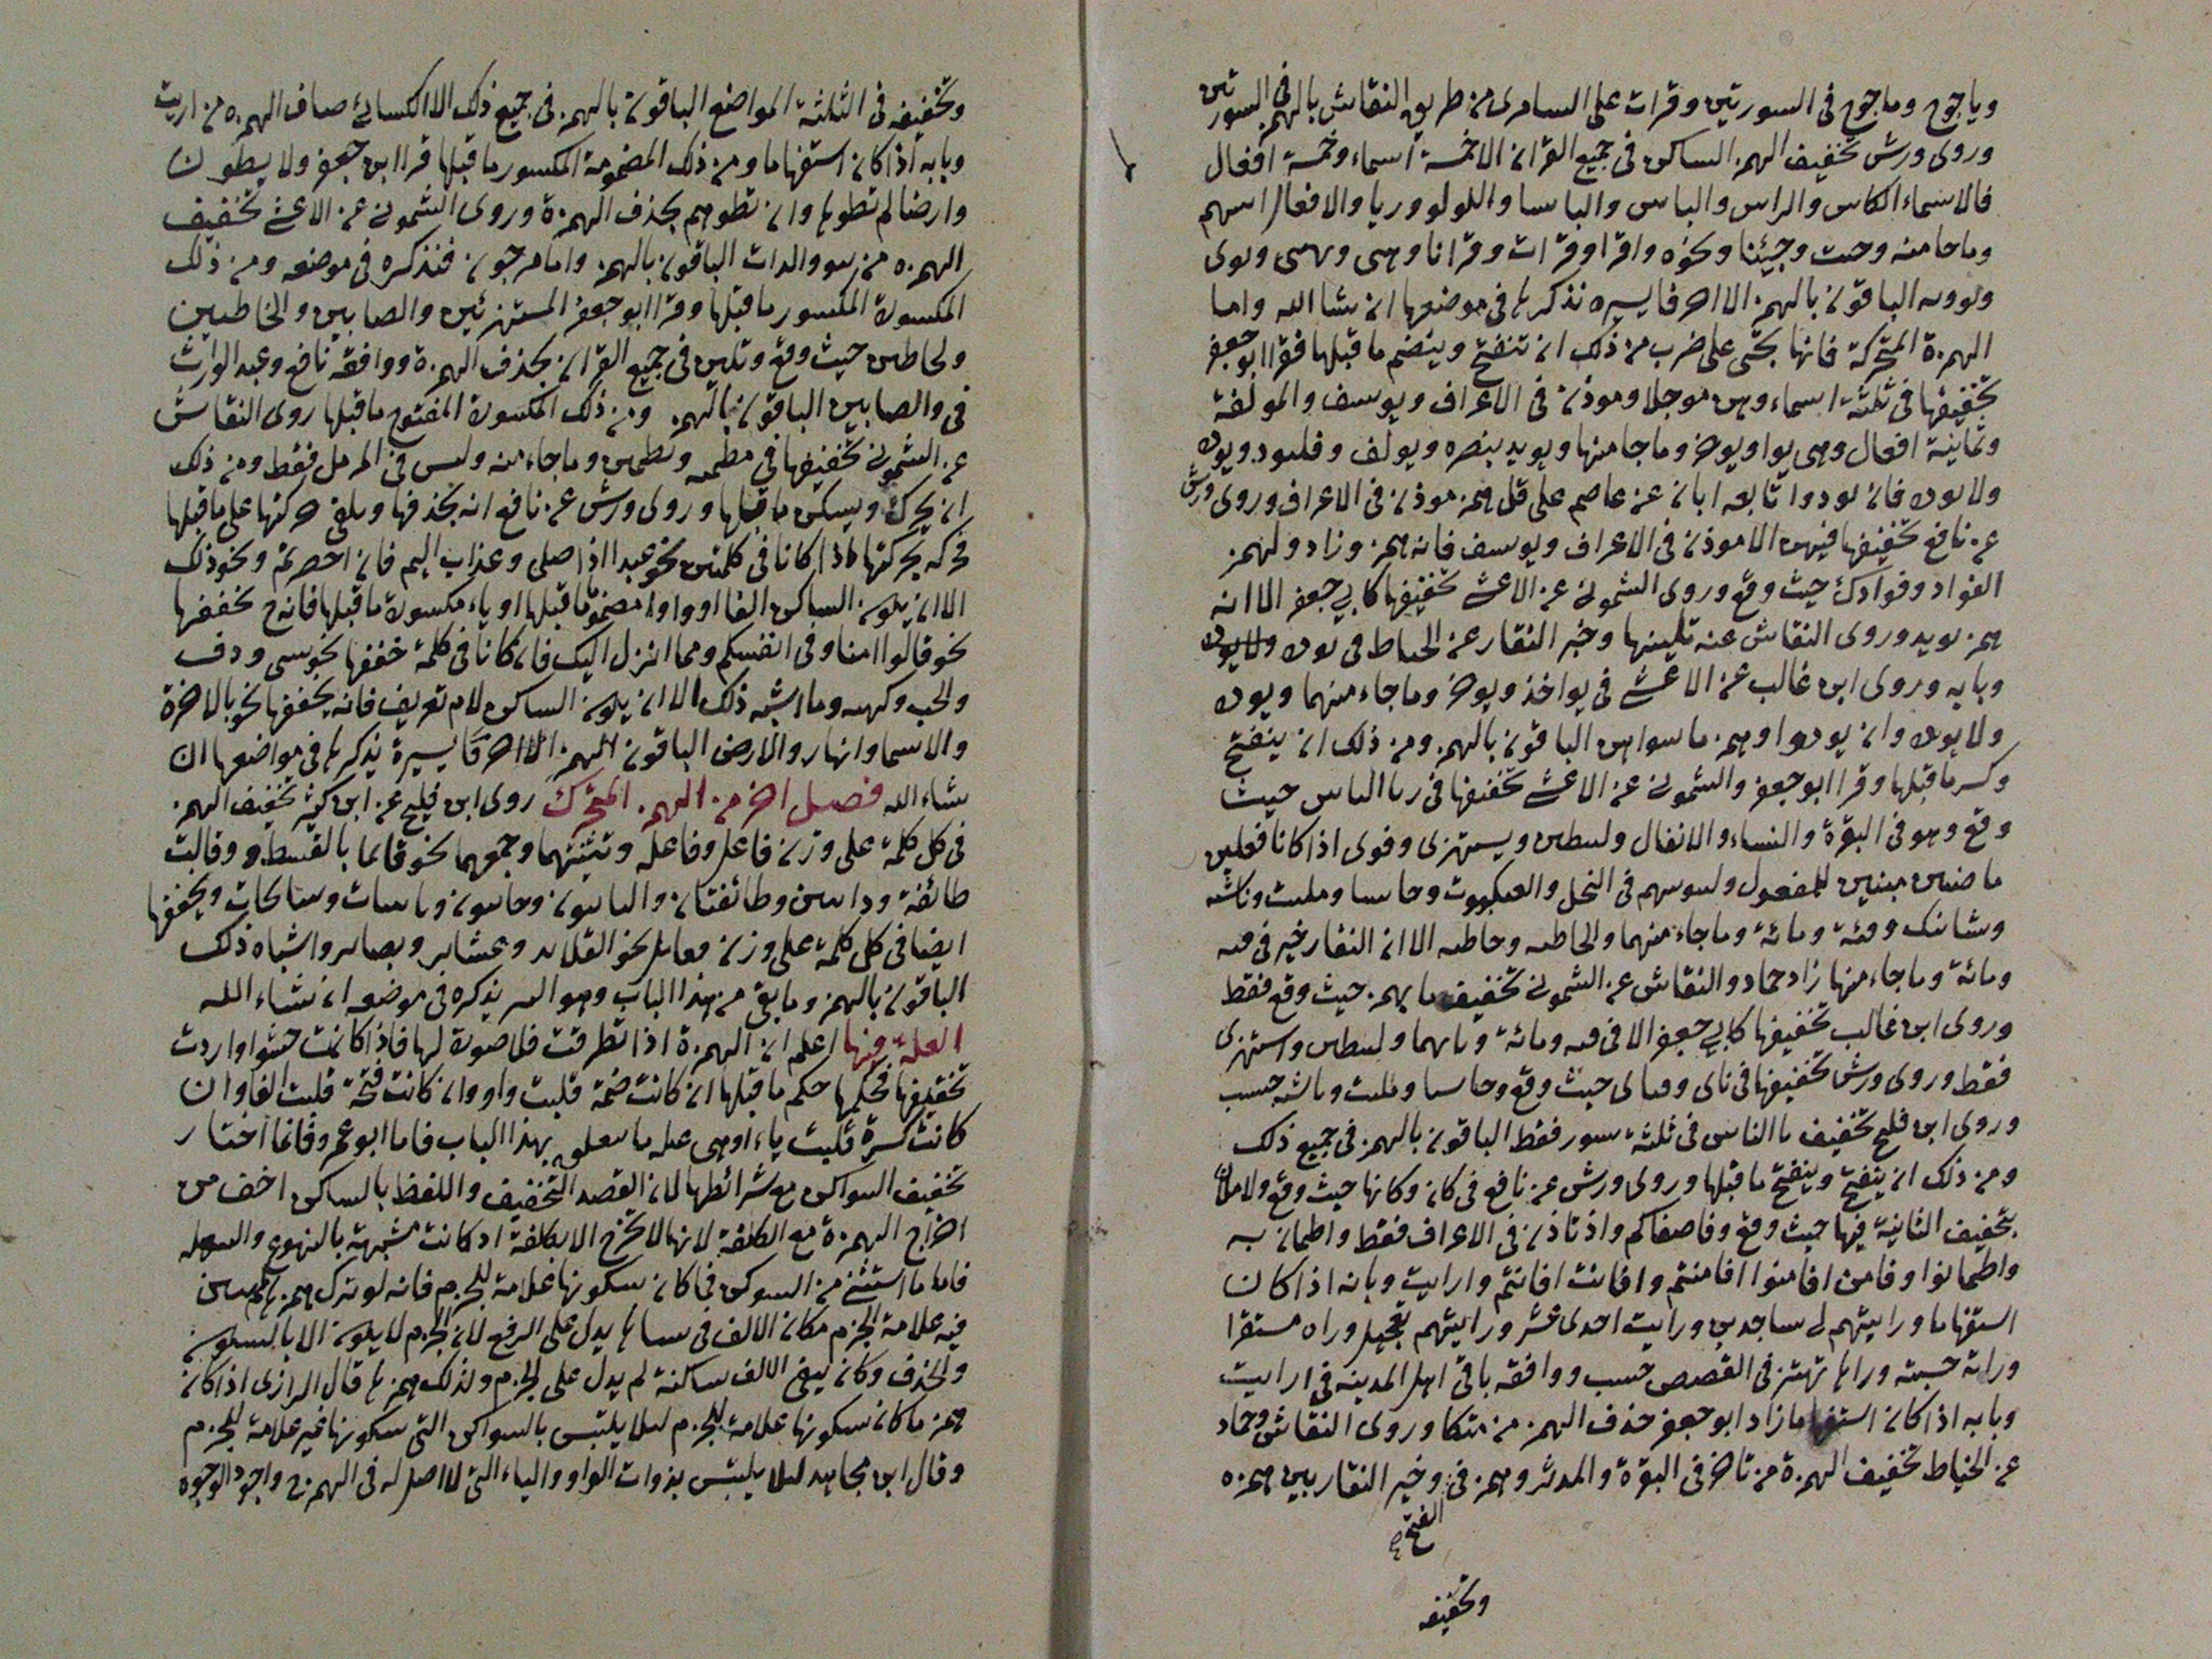 وياجوج وماجوج في السورتين وقرات على السامري من طريق النقاش بالهمز في السورتين
وروى ورش تخفيف الهمز الساكن في جميع القران الا خمسة أسماء وخمسة افعال
فالاسماء الكاس والراس والباس والباسا واللولو وريا والافعال اسهم
وما جا منه وجيت وجيئنا ونحوه واقرا وقرات وقرانا وهيى ويهيى ونوى
ونوويه الباقون بالهمز الا احرفا يسيره نذكرها في موضعها ان شا الله واما
الهمزة المتحركة فانها تجئ على ضرب من ذلك ان تنفتح وينضم ما قبلها فقرا ابو جعفر
بتخفيفها في ثلثة اسماء وهن موجلا وموذن في الاعراف ويوسف والمولفة
وثمانية افعال وهي يواويوخر وما جا منها ويويد بنصره ويولف وفليود ويوده
ولا يوده فان يودوا تابعه ابان عن عاصم على قل همز موذن في الاعراف وروى ورش
عن نافع تخفيفها فيهن الا موذن في الاعراف ويوسف فانه همز وزاد ولهمز
الفواد وفوادك حيث وقع وروى الشموني عن الاعشى تخفيفها كابي جعفر الا انه
همز يويد وروى النقاش عنه تليينها وخير النقار عن الخياط في يوده ولا يوده
وبابه وروى ابن غالب عن الاعشى في يواخذ ويوخر وما جاء منهما ويوده
ولا يوده وان يودوا وهمز ما سواهن الباقون بالهمز ومن ذلك ان ينفتح
وكسر ما قبلها وقرا ابو جعفر والشموني عن الاعشى تخفيفها في ريا الناس حيث
وقع وهو في البقرة والنساء والانفال وليبطين ويستهزى وقرى اذا كانا فعلين
ماضيين مبنيين للمفعول ولنبوينهم في النحل والعنكبوت وخاسيا ومليت وناشيه
وشانيك وفئة ومائة وما جاء منهما والخاطيه وخاطيه الا ان النقار خير في فيه
ومائة وما جاء منها زاد حماد والنقاش عن الشموني تخفيف ما يهمز حيث وقع فقط
وروى ابن غالب تخفيفها كابي جعفر الا في فيه ومائة وبابهما وليبطين واستهزى
فقط وروى ورش تخفيفها في باى وفباى حيث وقع وخاسيا ومليت وناشيه حسب
وروى ابن فليح تخفيف ريا الناس في ثلثة سور فقط الباقون بالهمز في جميع ذلك
ومن ذلك ان ينفتح وينفتح ما قبلها وروى ورش عن نافع في كان وكانها حيث وقع ولاملان
بتخفيف الثانية فيها حيث وقع وفاصفاكم واذ تاذن في الاعراف فقط واطمان به
واطمانوا وفامن افامنوا افامنتم وافانت افانتم وارايت وبابه اذا كان
استفهاما ورايتهم لي ساجدين ورايت احدى عشر ورايتهم تعجبك وراه مستقرا
وراته حسبته وراها تهتز في القصص حسب ووافقه باقي اهل المدينه في ارايت
وبابه اذا كان استفهاما زاد ابو جعفر حذف الهمز من متكا وروى النقاش وحماد
عن الخياط تخفيف الهمزة من تاخر في البقرة والمدثر وهمز في وخير النقار بين همزه
الفتح
وتخفيفه
وتخفيفه في الثلثة المواضع الباقون بالهمز في جميع ذلك الا الكسائي صاف الهمزه من اريت
وبابه اذا كان استفهاما ومن ذلك المضمومة المكسور ما قبلها قرا ابن جعفر ولا يطون
وارضا لم تطوها وان تطوهم بحذف الهمزة وروى الشموني عن الاعشى تخفيف
الهمزه من سو والدات الباقون بالهمز واما مرجون فنذكره في موضعه ومن ذلك
المكسورة المكسور ما قبلها وقرا ابو جعفر المستهزئين والصابين والخاطيين
ولخاطين حيث وقع وتلين في جميع القران بحذف الهمزة ووافقه نافع وعبد الوارث
في والصابين الباقون بالهمز ومن ذلك المكسورة المفتوح ما قبلها روى النقاش
عن الشموني تخفيفها في مطمينه وتطمين وما جاء منه وليس في المرمل فقط ومن ذلك
ان يحرك ويسكن ما قبلها وروى ورش عن نافع انه يحذفها ويلقي حركتها على ما قبلها
فحركه بحركتها فاذا كانا في كلمتين نحو عبدا اذا صلى وعذاب اليم فان احصرتم ونحو ذلك
الا ان يكون الساكن الفا او واوا مضموما ما قبلها او ياء مكسورة ما قبلها فانه ح تخففها
نحو قالوا امنا وفي انفسكم ومما انزل اليك فان كانا في كلمة خففها نحو سى ودف
والخب وكهيه وما اشبه ذلك الا ان يكون الساكن لام تعريف فانه يخففها نحو بالاخرة
والاسما وانهار والارض الباقون بالهمز الا احرفا يسيرة يذكرها في مواضعها ان
شاء الله فصل اخر من الهمز المتحرك روى ابن فليح عن ابن كثير تخفيف الهمز
في كل كلمة على وزن فاعل وفاعله وتثنيتهما وجمعهما نحو قائما بالقسط وقالت
طائفة ودايبين وطائفتان والتايبون وخايبون وتايبات وسايحات ويخففها
ايضا في كل كلمة على وزن فعايل نحو القلايد وعشاير وبصاير واشباه ذلك
الباقون بالهمز وما بقي من هذا الباب وهو اليسير يذكره في موضعه ان شاء الله
العلة فيها اعلم ان الهمزة اذا تطرقت فلا صورة لها فاذا كانت حشوا واردت
تخفيفها فحكمها حكم ما قبلها ان كانت ضمة قلبت واو وان كانت فتحة قلبت الفا وان
كانت كسرة قلبت ياء او هي عله ما يتعلق بهذا الباب فاما ابو عمرو فانما اختار
تخفيف السواكن مع شرائطها لان القصد التخفيف واللفظ بالساكن اخف من
اخراج الهمزة مع الكلفة لانها لا تخرج الا بكلفة اذ كانت مشبهة بالتهوع والسعله
فاما ما استثنى من السوكن فما كان سكونها علامة للجزم فانه لو ترك همزها لم يبن
فيه علامة الجزم مكان الالف في يساها يدل على الرفع لان الجزم لا يكون الا بالسكون
والحذف وكان يبقى الالف ساكنة لم يدل على الجزم ولذلك همزها قال الرازي اذا كان
همز ما كان سكونها علامة للجزم ليلا يلتبس بالسواكن التي سكونها غير علامة للجزم
وقال ابن مجاهد ليلا يلتبس بذوات الواو والياء التي لا اصل له في الهمز واجود الوجوه